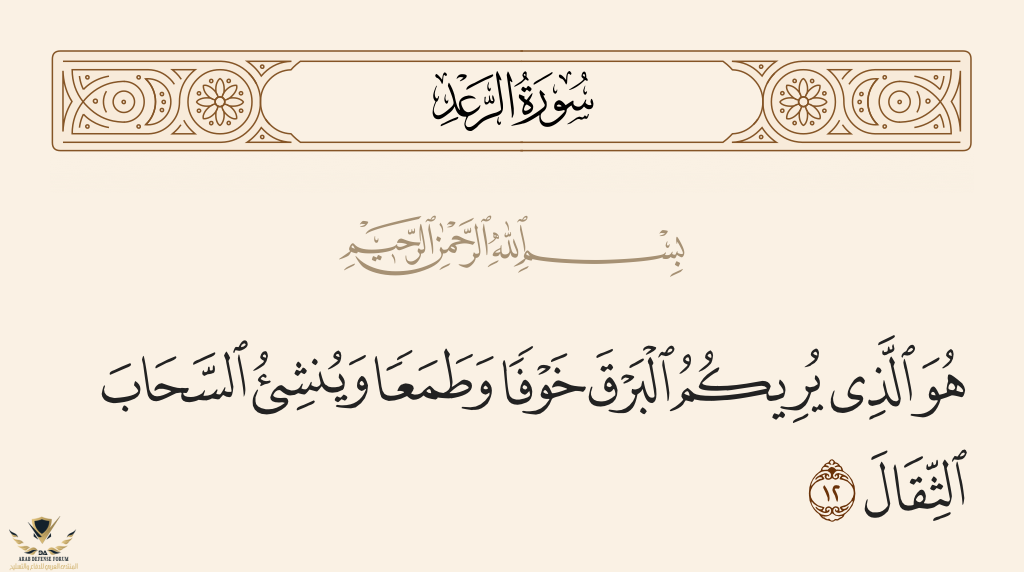 سُورَةُ الرَّعْدِ
بِسْمِ ٱللَّهِ ٱلرَّحْمَٰنِ ٱلرَّحِيمِ
هُوَ ٱلَّذِى يُرِيكُمُ ٱلْبَرْقَ خَوْفًا وَطَمَعًا وَيُنشِئُ ٱلسَّحَابَ
ٱلثِّقَالَ ١٢
DA
ARAB DEFENSE FORUM
المنتدى العربي للدفاع والتسليح